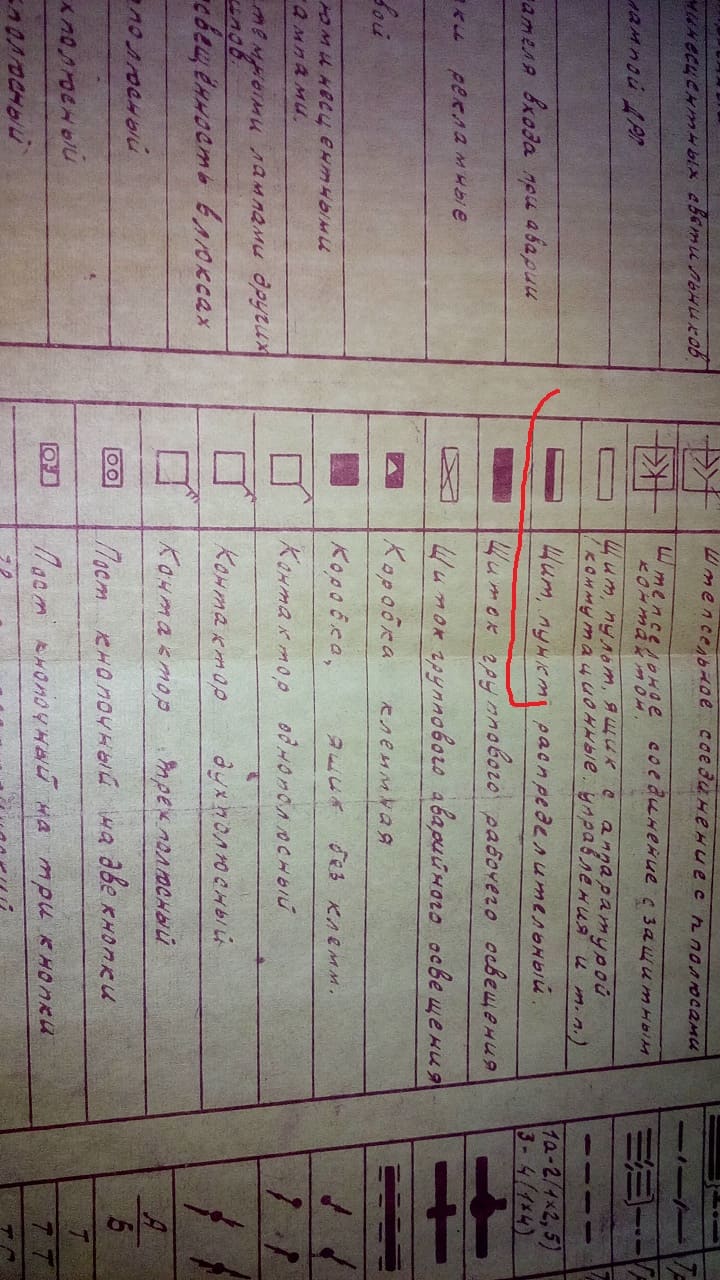 чинесцентных светильников
лампой ДРЛ
ателя входа при аварии
ки рекламные
вой
юминесцентными
ампами.
лампами других
ипов.
свещённость в люксах
полюсный
хполюсный
хполюсный
Штепсельное соединение с п полюсами
Штепсельное соединение с защитным
контактом.
Щит, пульт, ящик с аппаратурой
/коммутационные. управления и т.п.)
Щит, пункт распределительный.
Щиток группового рабочего освещения
Щиток группового аварийного освещения
Коробка клеммная
Коробка, ящик без клемм.
Контактор однополюсный
Контактор духполюсный
Контактор трехполюсный
Пост кнопочный на две кнопки
Пост кнопочный на три кнопки
1а-2(1×2,5)
3-4(1×4)
А
Б
Т
Т Т